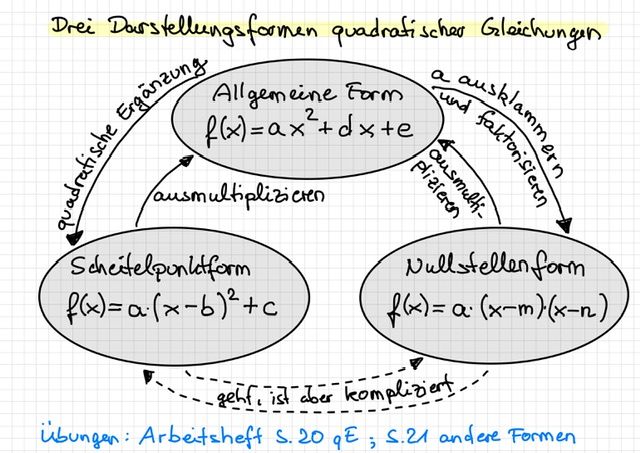 Drei Darstellungsformen quadratischer Gleichungen
Allgemeine Form
f(x)=ax²+dx+e
quadratische Ergänzung
a ausklammern
und faktorisieren
ausmultiplizieren
ausmulti-
plizieren
Scheitelpunktform
f(x)=a·(x-b)²+c
Nullstellenform
f(x)=a·(x-m)·(x-n)
geht, ist aber kompliziert
Übungen: Arbeitsheft S.20 qE ; S.21 andere Formen